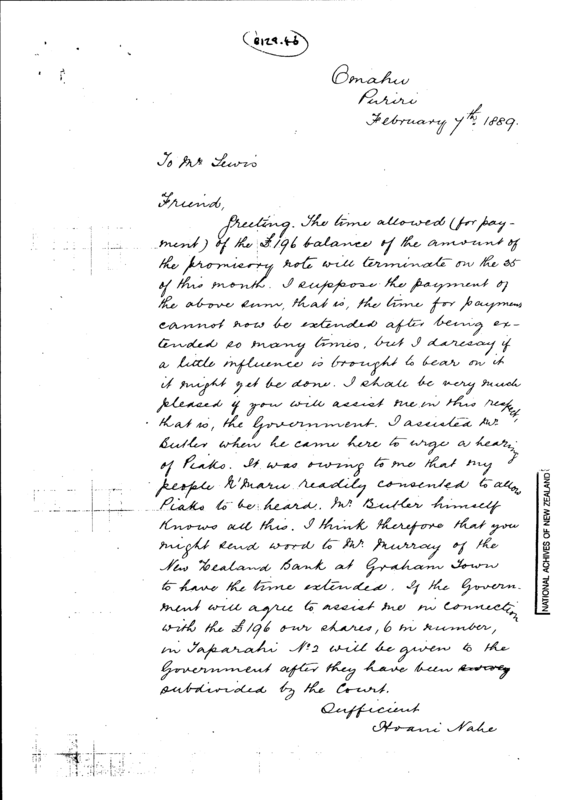 8129.46
Omahu
Puriri
February 7th 1889.
To Mr Lewis
Friend,
Greeting. The time allowed (for pay-
ment) of the £196 balance of the amount of
the promisory note will terminate on the 25
of this month. I suppose the payment of
the above sum, that is, the time for payment
cannot now be extended after being ex-
tended so many times, but I daresay if
a little influence is brought to bear on it
it might yet be done. I shall be very much
pleased if you will assist me in this respect,
that is, the Government. I assisted Mr
Butler when he came here to urge a hearing
of Piako. It was owing to me that my
people N'Maru readily consented to allow
Piako to be heard. Mr Butler himself
knows all this. I think therefore that you
might send word to Mr. Murray of the
New Zealand Bank at Graham Town
to have the time extended. If the Govern-
ment will agree to assist me in connection
with the £196 our shares, 6 in number,
in Taparahi No 2 will be given to the
Government after they have been
subdivided by the Court.
Sufficient
Hoani Nahe
NATIONAL ACHIVES OF NEW ZEALAND